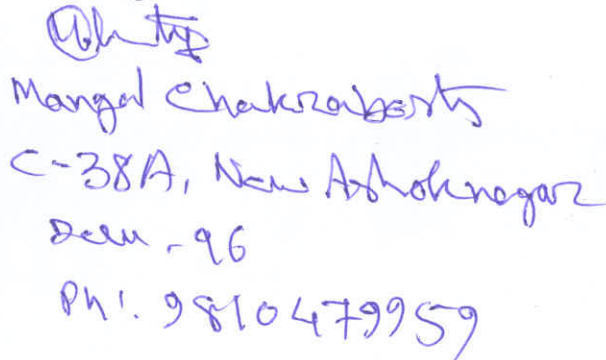 Mangal Chakraborty
C-38A, New Ashoknagar
Delhi - 96
Ph: 9810479959